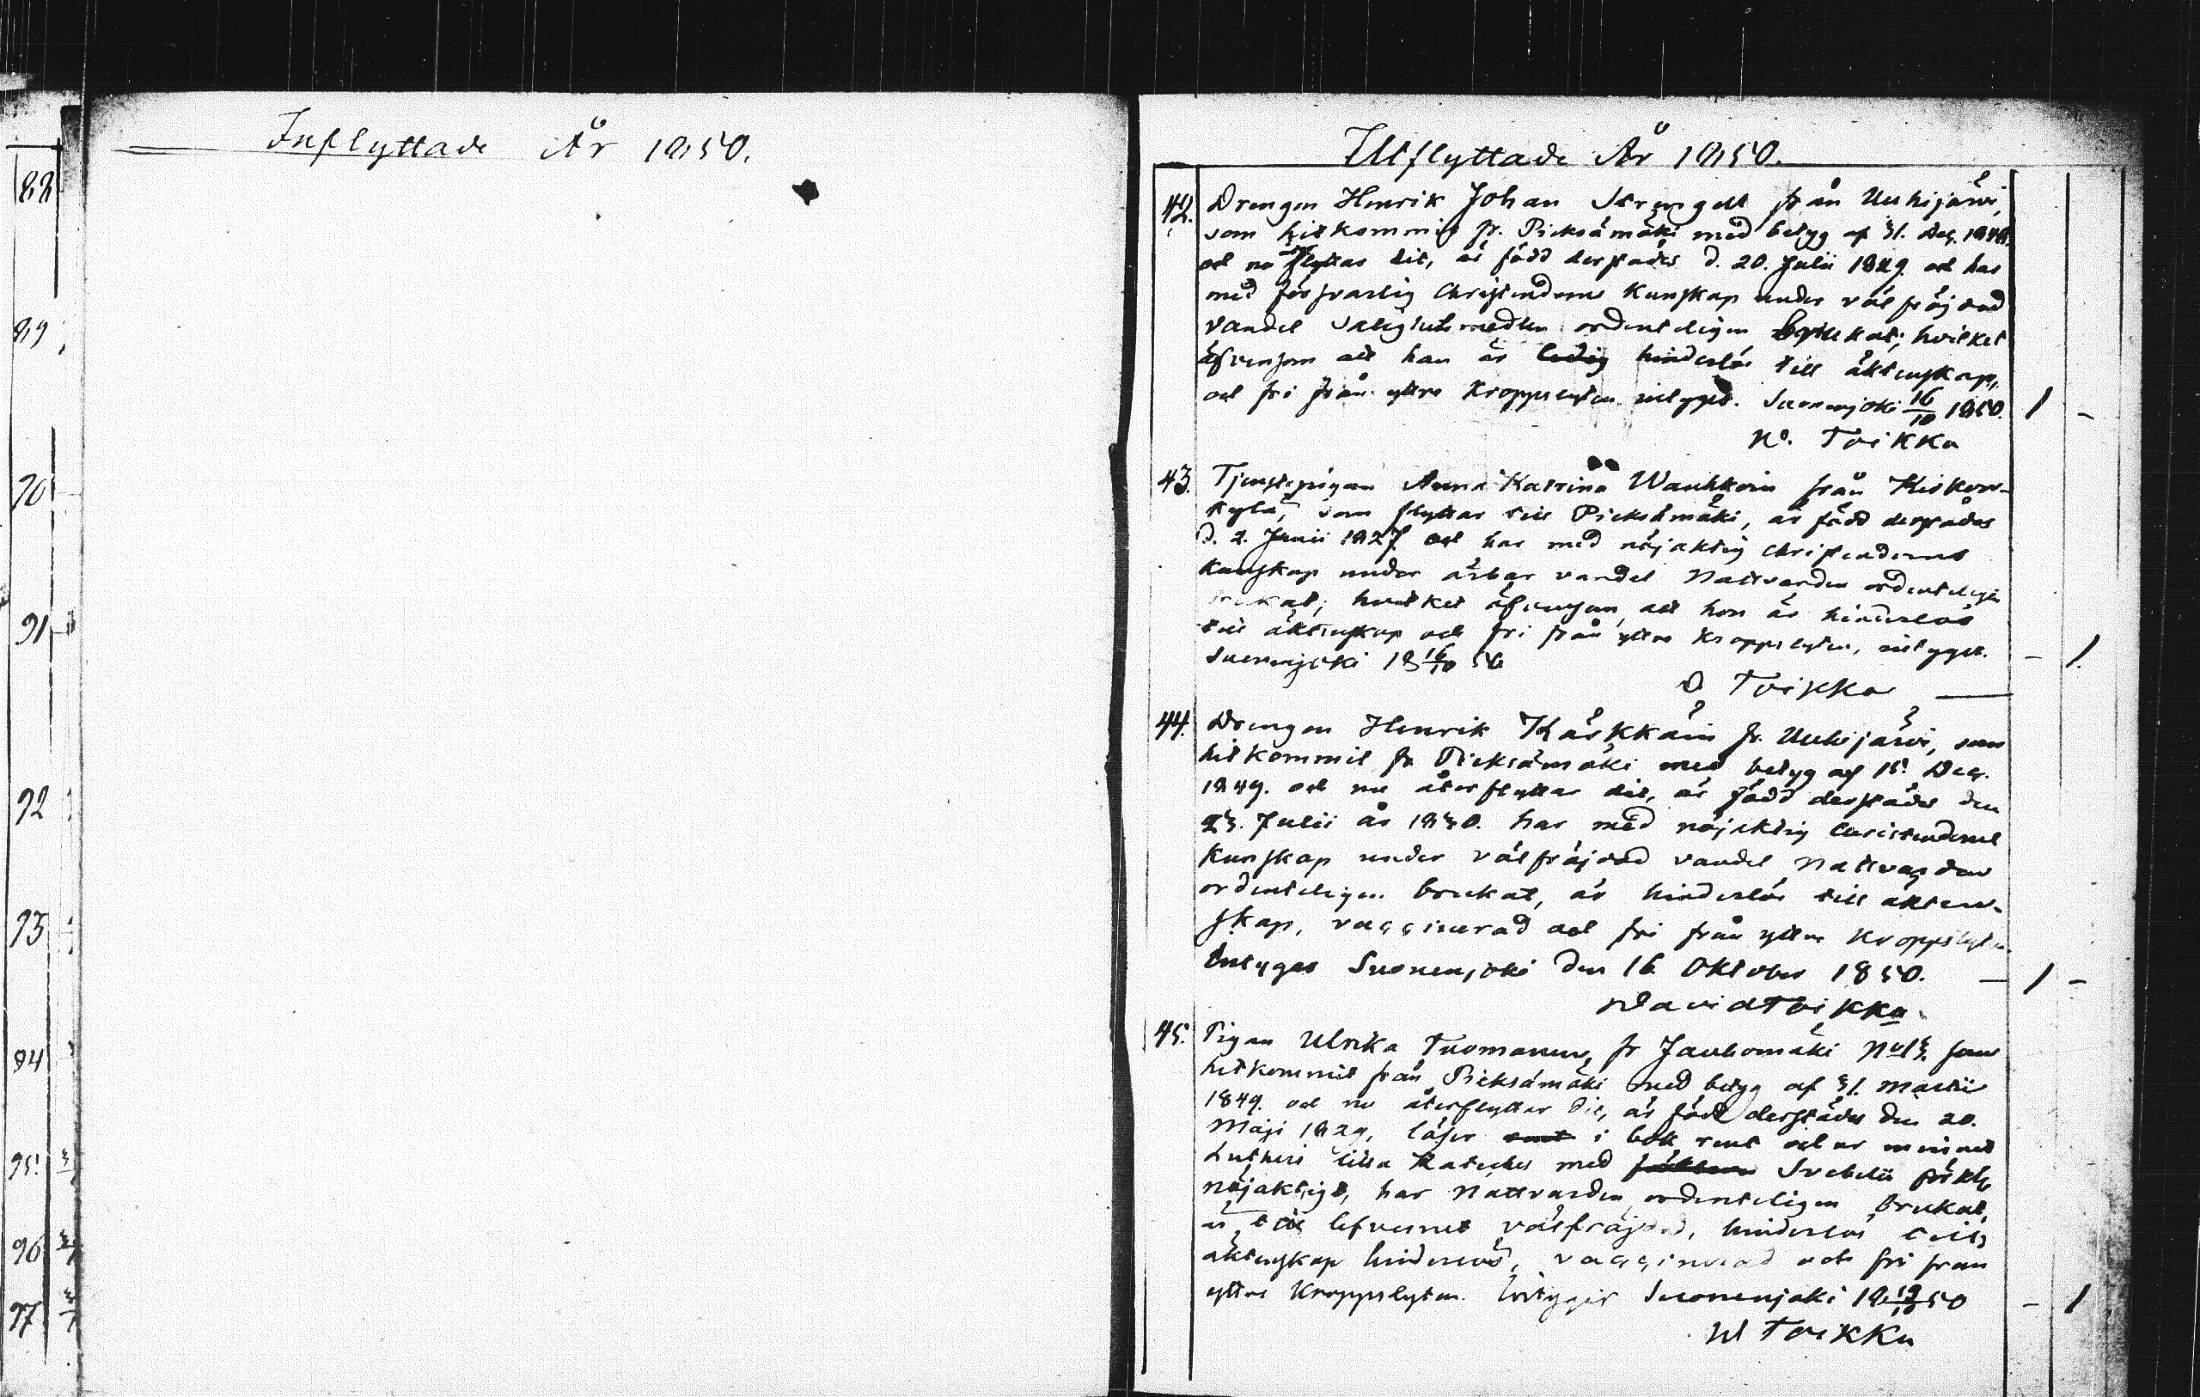 Inflyttade År 1850.
88
89
90
91
92
93
94
95
96
97
Utflyttade År 1850.
42. Drengen Henrik Johan Strengell från Uuhijärvi,
som hitkommit fr. Pieksämäki med betyg af 31. Dec.
och nu återflyttar dit, är född derstädes d. 20. Julii 1829. och har
med försvarlig Christendoms Kunskap under välfräjdad
vandel Salighetsmedlen ordenteligen brukat; hvilket
äfvensom att han är ledig hinderlös till äktenskap,
och fri från yttre Kroppslyten intygas. Suonenjoki 16/10 1850. 1 -
D. Toikka
43. Tjenstepigan Anna Katrina Wauhkoin från
kylä, som flyttar till Pieksämäki, är född derstädes
d. 2. Junii 1827. och har med nöjaktig Christendoms
Kunskap under ärbar vandel Nattvarden ordenteligen
brukat; hvilket äfvensom, att hon är hinderlös
till äktenskap och fri från yttre Kroppslyten, intygas.
Suonenjoki 18 16/10 50 - 1.
D Toikka
44. Drengen Henrik Kärkkäin fr. Uuhijärvi, som
hitkommit fr Pieksämäki med betyg af 15. Dec.
1849. och nu återflyttar dit, är född derstädes den
23. Julii år 1830. har med nöjaktig Christendoms
Kunskap under välfräjdad vandel Nattvarden
ordenteligen brukat, är hinderlös till äkten-
skap, vaccinerad och fri från yttre Kroppslyten.
Intygas Suonenjoki den 16 Oktober 1850. - 1 -
David Toikka.
45. Pigan Ulrika Tuomanen, fr Jauhomäki No 13. som
hitkommit från Pieksämäki med betyg af 31. Martii
1849. och nu återflyttar dit, är född derstädes den 20.
Maji 1829, läser i bok rent och ur minnet
Lutheri lilla Kateches med Svebelii förkl.
nöjaktigt, har Nattvarden ordenteligen brukat,
är till lefvernet välfräjdad, hinderlös till
äktenskap hinderlös, vaccinerad och fri från
yttre Kroppslyten. Intygar Suonenjoki 18 19/10 50 - 1
D Toikka